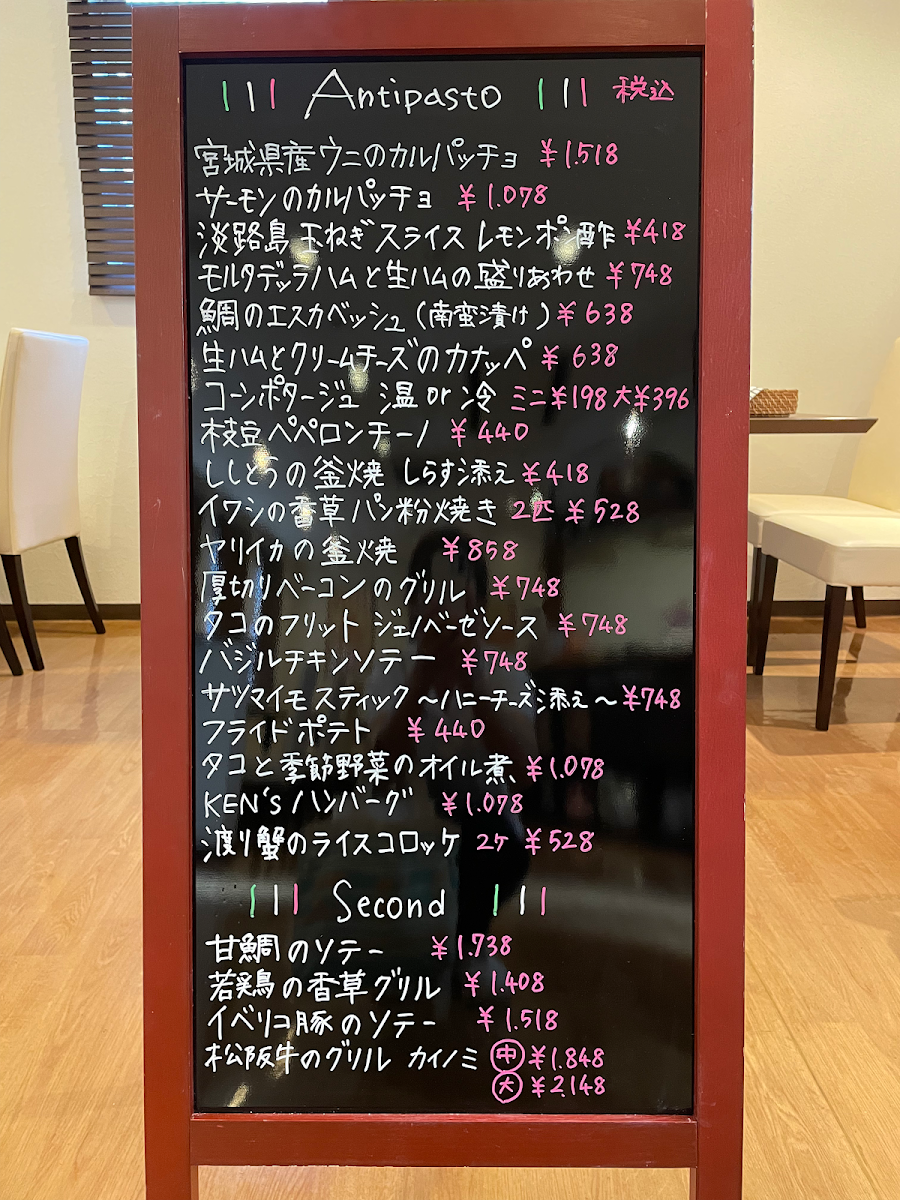 Antipasto 税込
宮城県産ウニのカルパッチョ ¥1.518
サーモンのカルパッチョ ¥1.078
淡路島 玉ねぎスライス レモンポン酢 ¥418
モルタデッラハムと生ハムの盛りあわせ ¥748
鯛のエスカベッシュ(南蛮漬け) ¥638
生ハムとクリームチーズのカナッペ ¥638
コーンポタージュ 温or冷 ミニ¥198 大¥396
枝豆ペペロンチーノ ¥440
ししとうの釜焼 しらす添え ¥418
イワシの香草パン粉焼き 2匹 ¥528
ヤリイカの釜焼 ¥858
厚切りベーコンのグリル ¥748
タコのフリット ジェノベーゼソース ¥748
バジルチキンソテー ¥748
サツマイモスティック ～ハニーチーズ添え～ ¥748
フライドポテト ¥440
タコと季節野菜のオイル煮 ¥1.078
KEN'sハンバーグ ¥1.078
渡り蟹のライスコロッケ 2ケ ¥528
Second
甘鯛のソテー ¥1.738
若鶏の香草グリル ¥1.408
イベリコ豚のソテー ¥1.518
松阪牛のグリル カイノミ ㊥ ¥1.848
大 ¥2.148